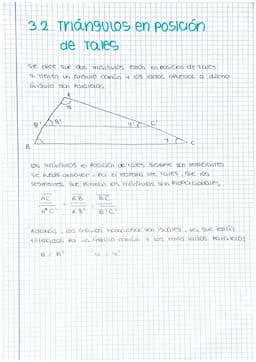 3.2 Triángulos en posición
de Tales
Se dice que dos triángulos están en posición de Tales
si tienen un ángulo común y los lados opuestos a dicho
ángulo son paralelos
A
α
B' β' γ' C'
B γ C
Los triángulos en posición de Tales siempre son semejantes
Se puede observar, por el teorema de Tales, que los
segmentos que forman los triángulos son proporcionales
AC AB BC
A'C' A B' B'C'
Además, los ángulos son iguales, ya que están
por un ángulo común y los lados paralelos